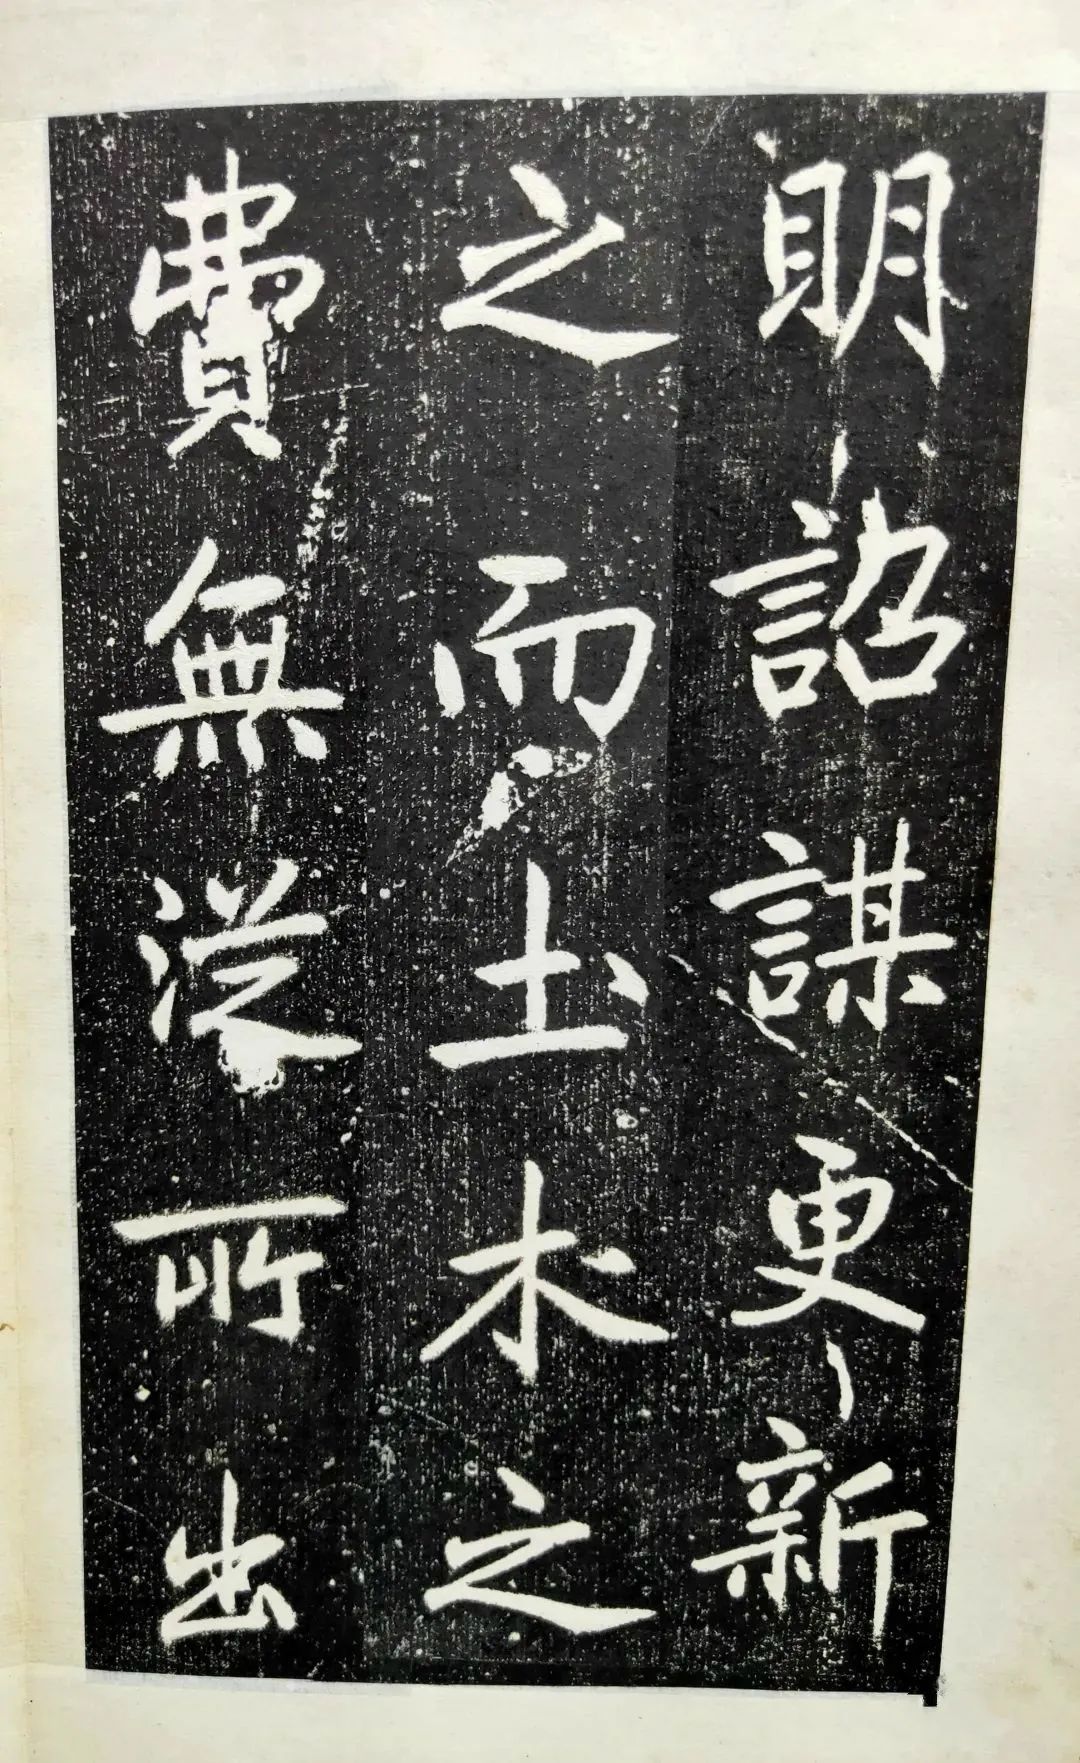 明詔謀更新
之而土木之
費無從所出